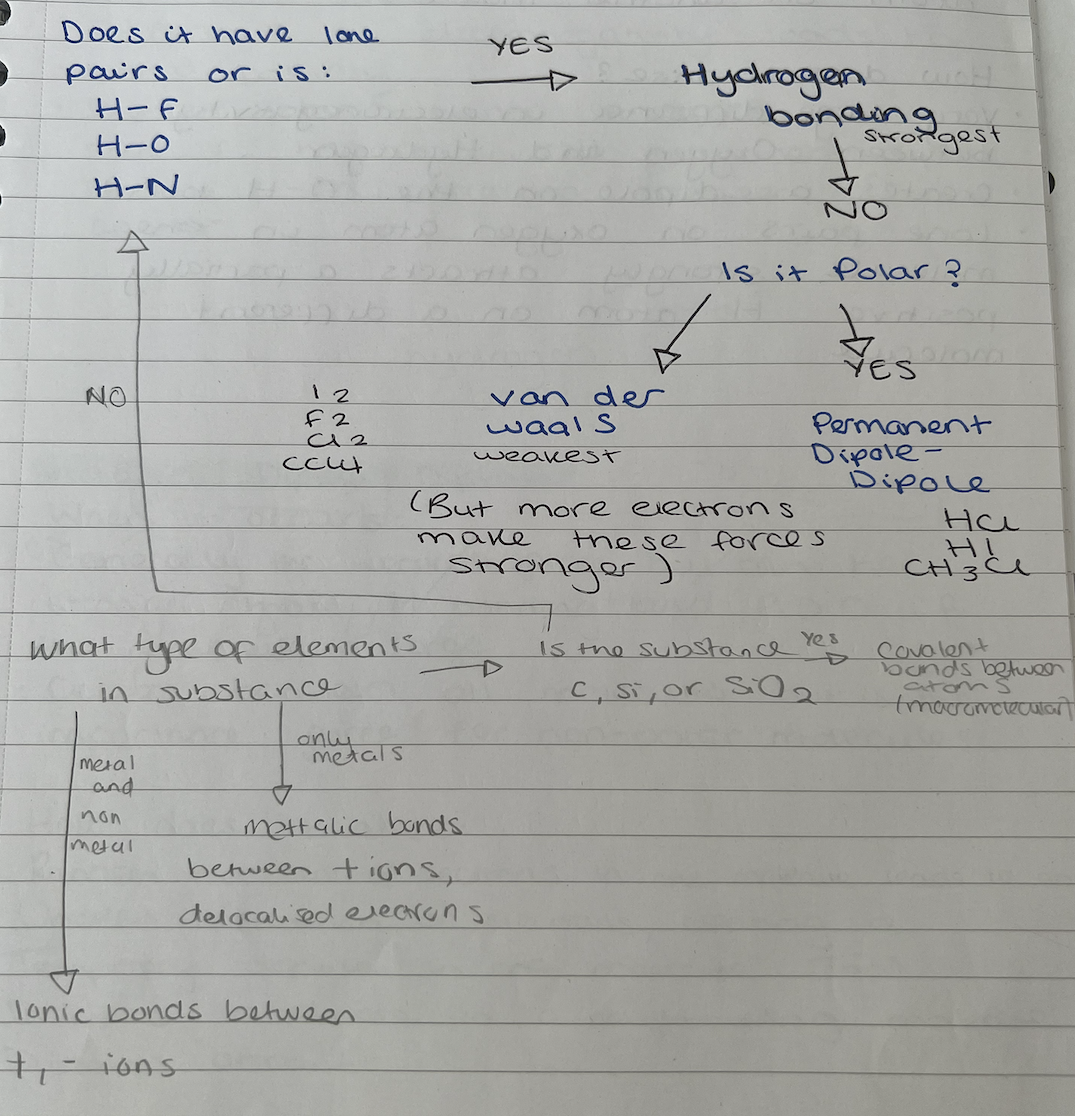 Does it have lone
pairs or is:
H-F
H-O
H-N
YES
Hydrogen
bonding
strongest
NO
Is it Polar?
YES
NO
I2
F2
Cl2
CCl4
van der
waals
weakest
(But more electrons
make these forces
stronger)
Permanent
Dipole-
Dipole
HCl
HI
CH3Cl
What type of elements
in substance
Is the substance
C, Si, or SiO2
Yes
Covalent
bonds between
atoms
(macromolecular)
only
metals
metal
and
non
metal
mettalic bonds
between + ions,
delocalised electrons
Ionic bonds between
+, - ions